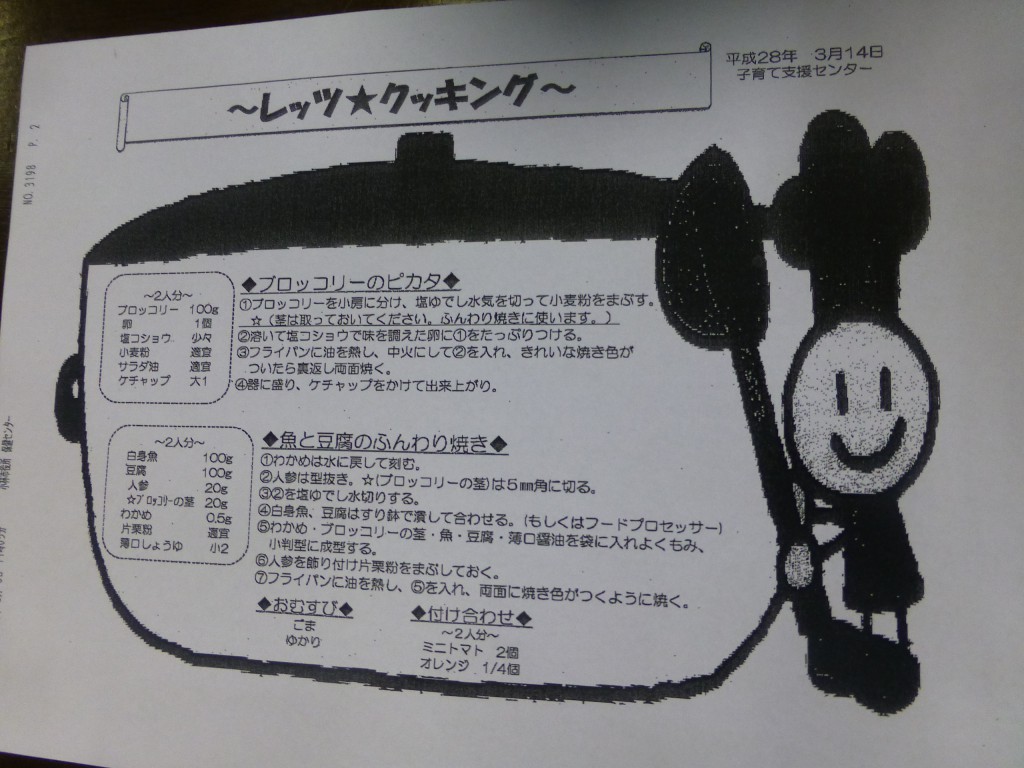 平成28年　3月14日
子育て支援センター
～レッツ★クッキング～
NO. 3198　P. 2
～2人分～
ブロッコリー　100g
卵　1個
塩コショウ　少々
小麦粉　適宜
サラダ油　適宜
ケチャップ　大1
◆ブロッコリーのピカタ◆
①ブロッコリーを小房に分け、塩ゆでし水気を切って小麦粉をまぶす。
☆（茎は取っておいてください。ふんわり焼きに使います。）
②溶いて塩コショウで味を調えた卵に①をたっぷりつける。
③フライパンに油を熱し、中火にして②を入れ、きれいな焼き色が
ついたら裏返し両面焼く。
④器に盛り、ケチャップをかけて出来上がり。
～2人分～
白身魚　100g
豆腐　100g
人参　20g
☆ブロッコリーの茎　20g
わかめ　0.5g
片栗粉　適宜
薄口しょうゆ　小2
◆魚と豆腐のふんわり焼き◆
①わかめは水に戻して刻む。
②人参は型抜き。☆(ブロッコリーの茎)は5㎜角に切る。
③②を塩ゆでし水切りする。
④白身魚、豆腐はすり鉢で潰して合わせる。(もしくはフードプロセッサー)
⑤わかめ・ブロッコリーの茎・魚・豆腐・薄口醤油を袋に入れよくもみ、
小判型に成型する。
⑥人参を飾り付け片栗粉をまぶしておく。
⑦フライパンに油を熱し、⑤を入れ、両面に焼き色がつくように焼く。
◆おむすび◆
ごま
ゆかり
◆付け合わせ◆
～2人分～
ミニトマト　2個
オレンジ　1/4個